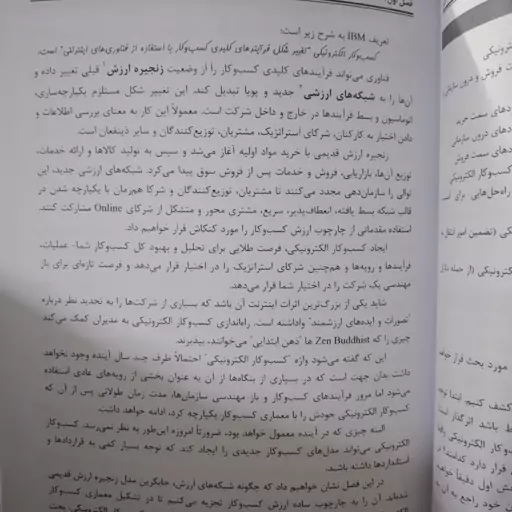 فصل اول:
تعریف IBM به شرح زیر است:
کسب‌وکار الکترونیکی "تغییر شکل فرآیندهای کلیدی کسب‌وکار با استفاده از فناوری‌های اینترنتی" است.
فناوری می‌تواند فرآیندهای کلیدی کسب‌وکار را از وضعیت زنجیره ارزش قبلی تغییر داده و
آن‌ها را به شبکه‌های ارزشی جدید و پویا تبدیل کند. این تغییر شکل مستلزم یکپارچه‌سازی،
اتوماسیون و بسط فرآیندها در خارج و داخل شرکت است. معمولاً این کار به معنای بررسی اطلاعات و
دادن اختیار به کارکنان، شرکای استراتژیک، مشتریان، توزیع‌کنندگان و سایر ذینفعان است.
زنجیره ارزش قدیمی با خرید مواد اولیه آغاز می‌شد و سپس به تولید کالاها و ارائه خدمات،
توزیع آن‌ها، بازاریابی، فروش و خدمات پس از فروش سوق پیدا می‌کرد. شبکه‌های ارزشی جدید، این
توالی را سازمان‌دهی مجدد می‌کنند تا مشتریان، توزیع‌کنندگان و شرکا هم‌زمان با یکپارچه شدن در
قالب شبکه بسط یافته، انعطاف‌پذیر، سریع، مشتری محور و متشکل از شرکای Online مشارکت کنند.
استفاده مقدماتی از چارچوب ارزش کسب‌وکار را مورد کنکاش قرار خواهیم داد.
ایجاد کسب‌وکار الکترونیکی، فرصت طلایی برای تحلیل و بهبود کل کسب‌وکار شما- عملیات،
فرآیندها و رویه‌ها و هم‌چنین شرکای استراتژیک را در اختیار قرار می‌دهد و فرصت تازه‌ای برای باز
مهندسی یک شرکت را در اختیار شما قرار می‌دهد.
شاید یکی از بزرگ‌ترین اثرات اینترنت آن باشد که بسیاری از شرکت‌ها را به تجدید نظر درباره
"تصورات و ایده‌های ارزشمند" واداشته است. راه‌اندازی کسب‌وکار الکترونیکی به مدیران کمک می‌کند
چیزی را که Zen Buddhist ها "ذهن ابتدایی" می‌خوانند، بپذیرند.
این که گفته می‌شود واژه "کسب‌وکار الکترونیکی" احتمالاً ظرف چند سال آینده وجود نخواهد
داشت بدان جهت است که در بسیاری از بنگاه‌ها از آن به عنوان بخشی از رویه‌های عادی استفاده
می‌شود اما مرور فرآیندهای کسب‌وکار و باز مهندسی سازمان‌ها، مدت زمان طولانی پس از آن که
کسب‌وکار الکترونیکی خودش را با معماری کسب‌وکار یکپارچه کرد، ادامه خواهد داشت.
البته چیزی که در آینده معمول خواهد بود، ضرورتاً امروزه این‌طور به نظر نمی‌رسد. کسب‌وکار
الکترونیکی می‌تواند مدل‌های کسب‌وکار جدیدی را ایجاد کند که توجه بسیار کمی به قراردادها و
استانداردها داشته باشد.
در این فصل نشان خواهیم داد که چگونه شبکه‌های ارزش، جایگزین مدل زنجیره ارزش قدیمی
شده‌اند. آن را به چارچوب ساده ارزش کسب‌وکار تجزیه می‌کنیم تا در تشکیل معماری کسب‌وکار